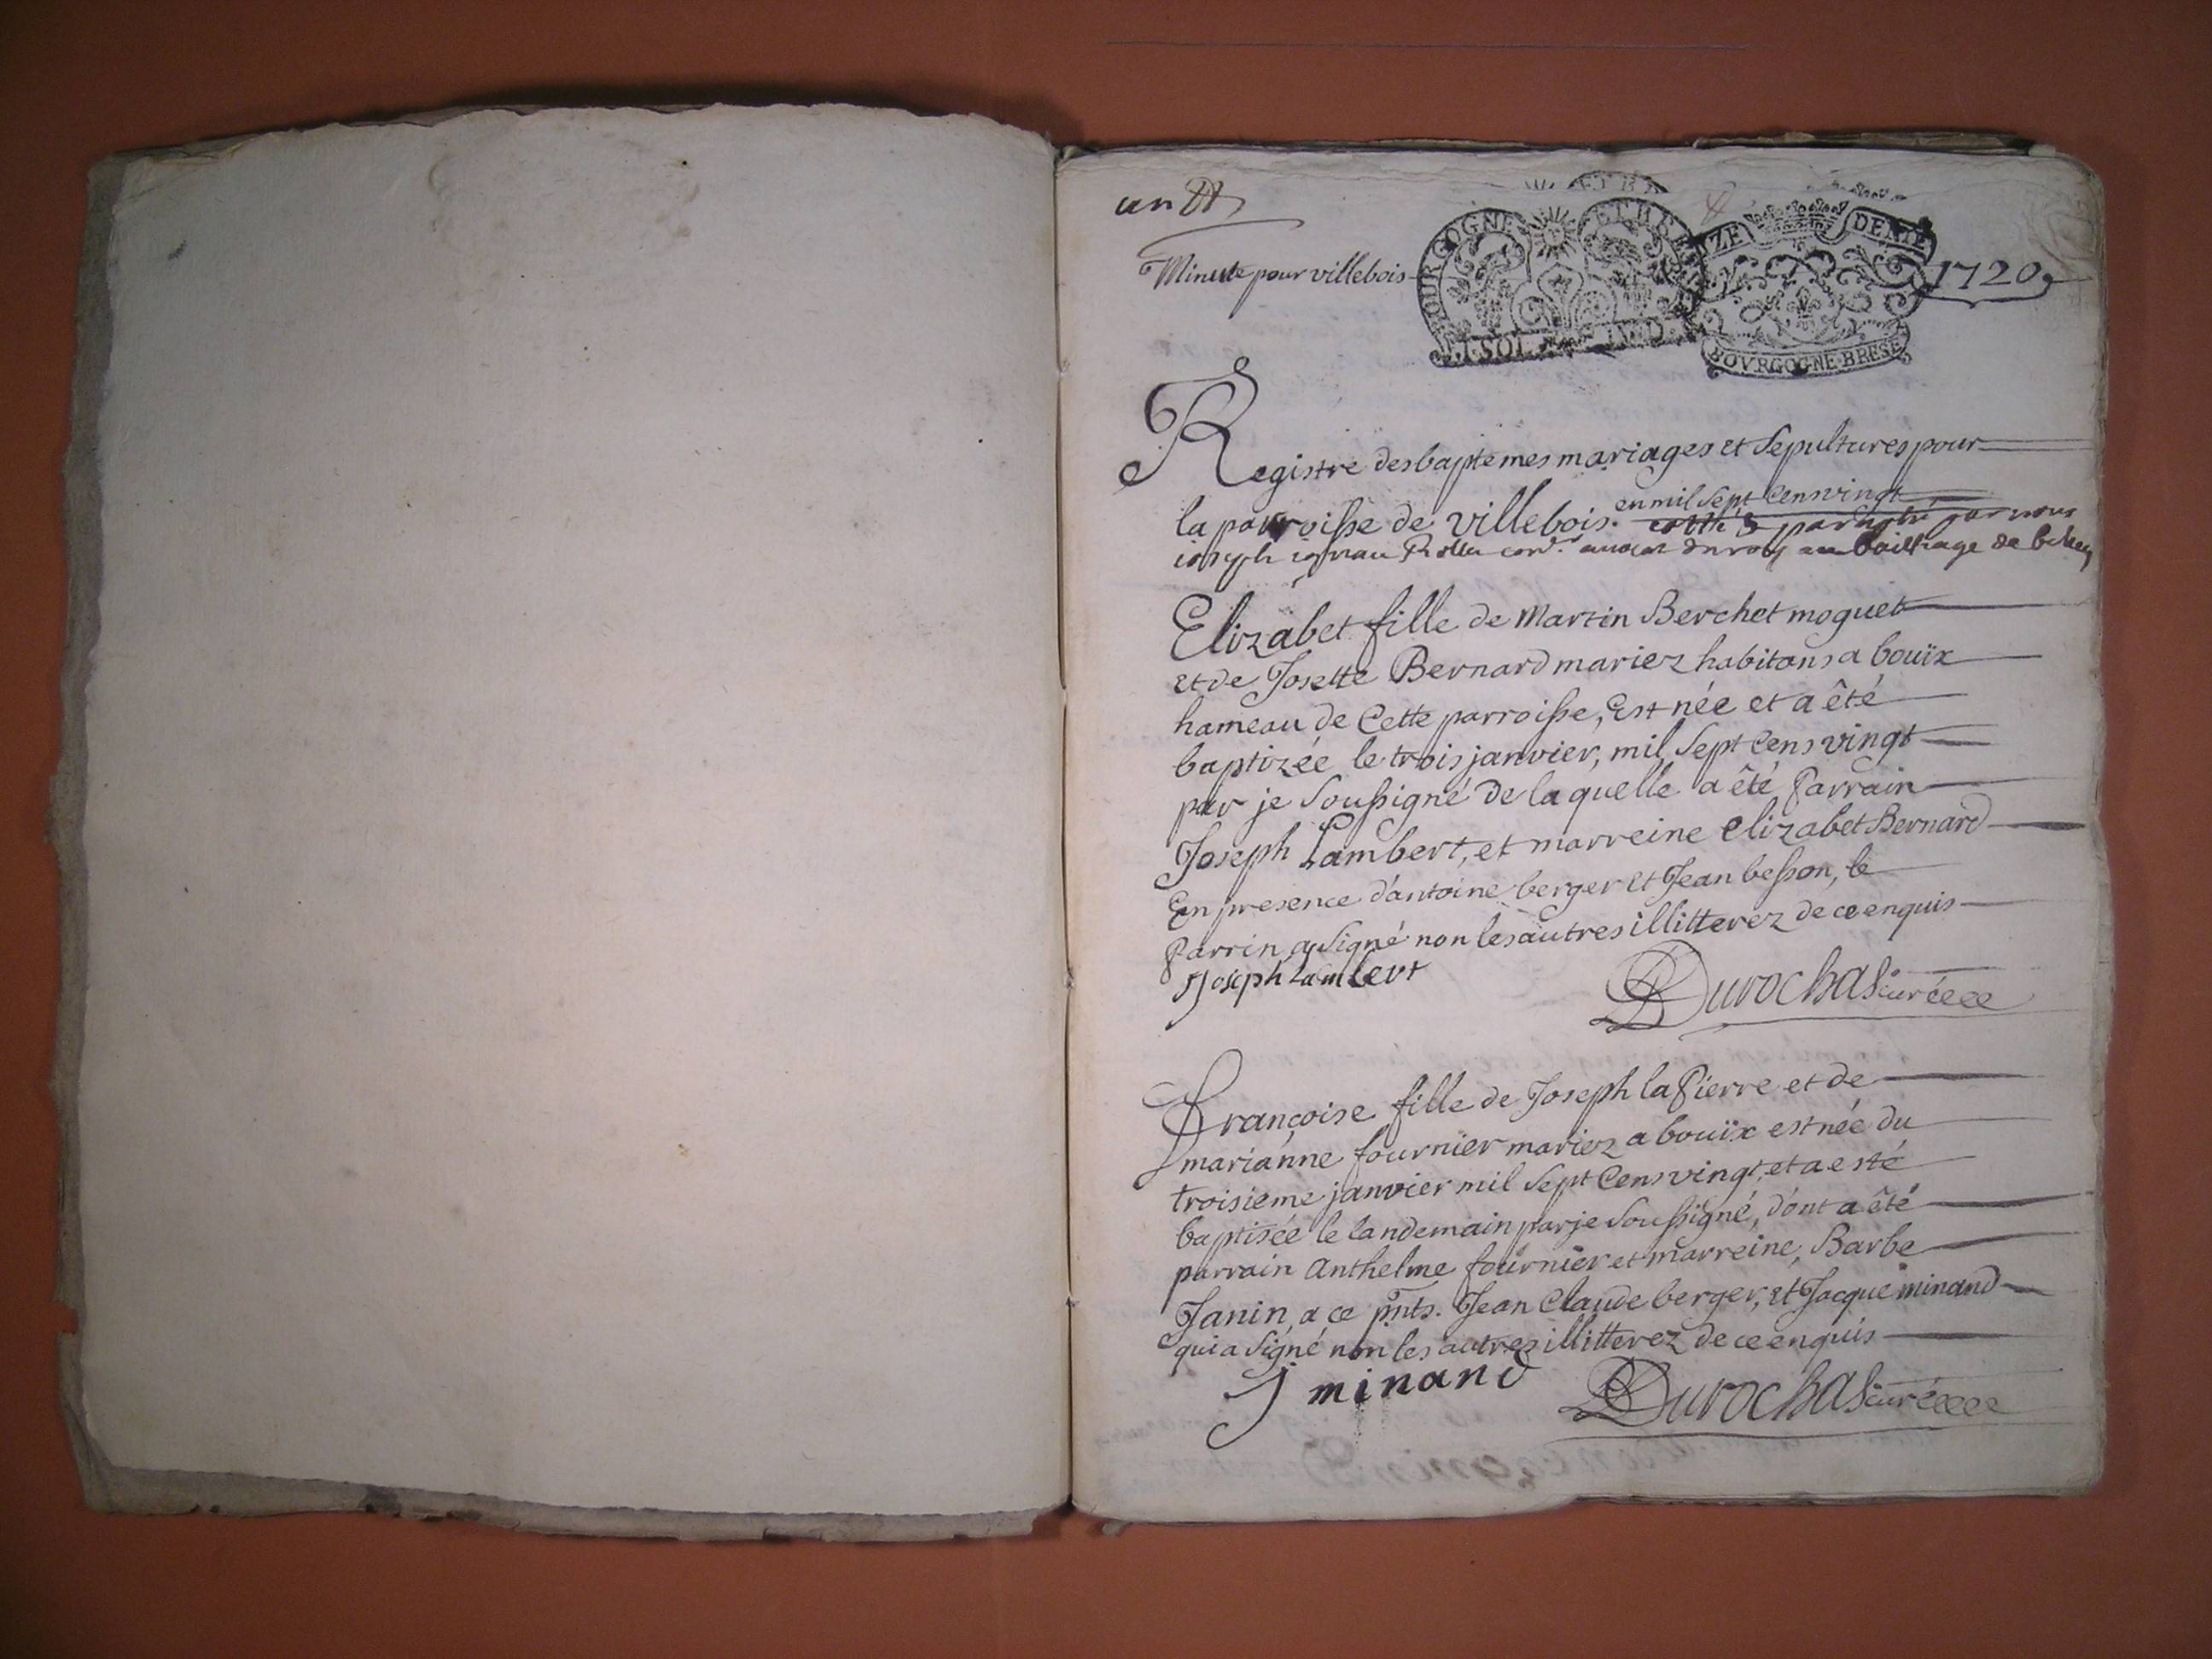 un
Minutte pour villebois
BOURGOGNE ET BRESSE
DENIE
BOVRGOGNE BRESE
1720
Registre des baptemes mariages et Sepultures pour
la parroisse de villebois. en mil Sept Cens vingt
cotté & paraphé par nous
joseph avocat du roy au bailliage de belley
Elizabet fille de Martin Berchet moguet
et de Josette Bernard mariez habitans a bouïx
hameau de Cette parroisse, Est née et a êté
baptizée le trois janvier, mil Sept Cens vingt
par je Soussigné de laquelle a êté Parrain
Joseph Lambert, et marreine Elizabet Bernard
En presence d'antoine berger et Jean besson, le
Parrin a Signé non les autres illitterez de ce enquis
Joseph Lambert
Durochas curé
Françoise fille de Joseph la Pierre et de
marianne fournier mariez a bouïx est née du
troisieme janvier mil Sept Cens vingt, et a esté
baptisée le landemain par je Soussigné, dont a êté
parrain Anthelme fournier et marreine, Barbe
Janin, a ce pnts. Jean Claude berger, et Jacque minand
qui a Signé non les autres illitterez de ce enquis
J minand
Durochas curé